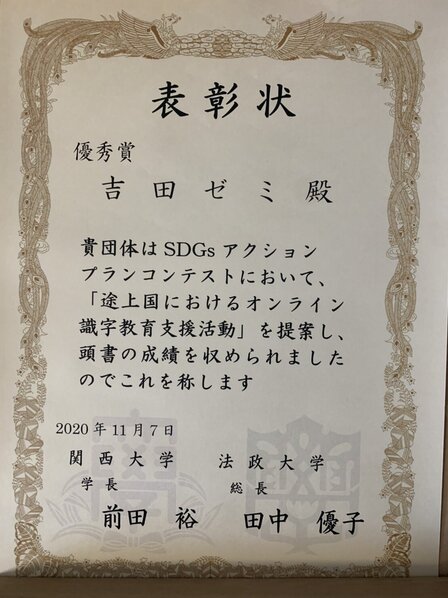 表彰状
優秀賞
吉田ゼミ殿
貴団体は SDGs アクション
プランコンテストにおいて、
「途上国におけるオンライン
識字教育支援活動」を提案し、
頭書の成績を収められました
のでこれを称します
2020年11月7日
関西大学 法政大学
学長 総長
前田 裕 田中 優子